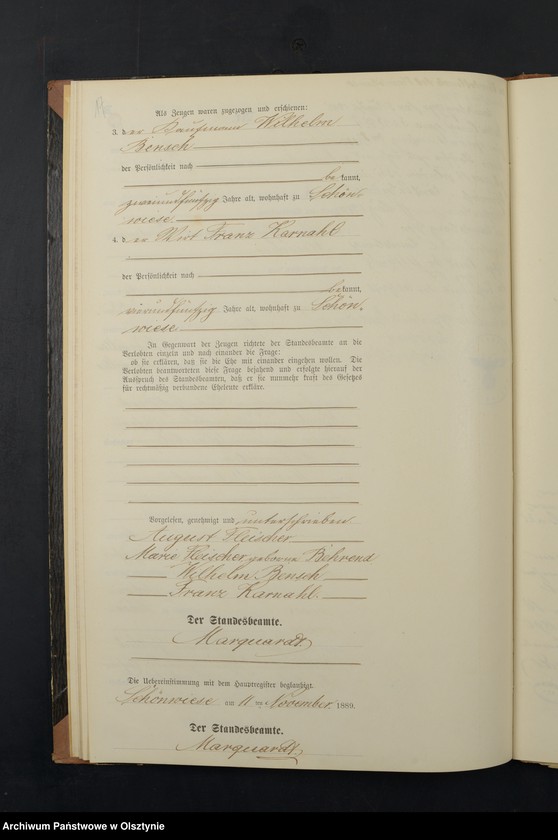 Als Zeugen waren zugezogen und erschienen:
3. der Kaufmann Wilhelm
Bensch
der Persönlichkeit nach
bekannt,
zweiundfünfzig Jahre alt, wohnhaft zu Schön-
wiese
4. der Wirt Franz Karnahl
der Persönlichkeit nach
bekannt,
vierundfünfzig Jahre alt, wohnhaft zu Schön-
wiese
In Gegenwart der Zeugen richtete der Standesbeamte an die
Verlobten einzeln und nach einander die Frage:
ob sie erklären, daß sie die Ehe mit einander eingehen wollen. Die
Verlobten beantworteten diese Frage bejahend und erfolgte hierauf der
Ausspruch des Standesbeamten, daß er sie nunmehr kraft des Gesetzes
für rechtmäßig verbundene Eheleute erkläre.
Vorgelesen, genehmigt und unterschrieben
August Fleischer
Marie Fleischer geborene Behrend
Wilhelm Bensch
Franz Karnahl
Der Standesbeamte.
Marquardt
Die Uebereinstimmung mit dem Hauptregister beglaubigt.
Schönwiese am 11 ten November 1889.
Der Standesbeamte.
Marquardt
Archiwum Państwowe w Olsztynie